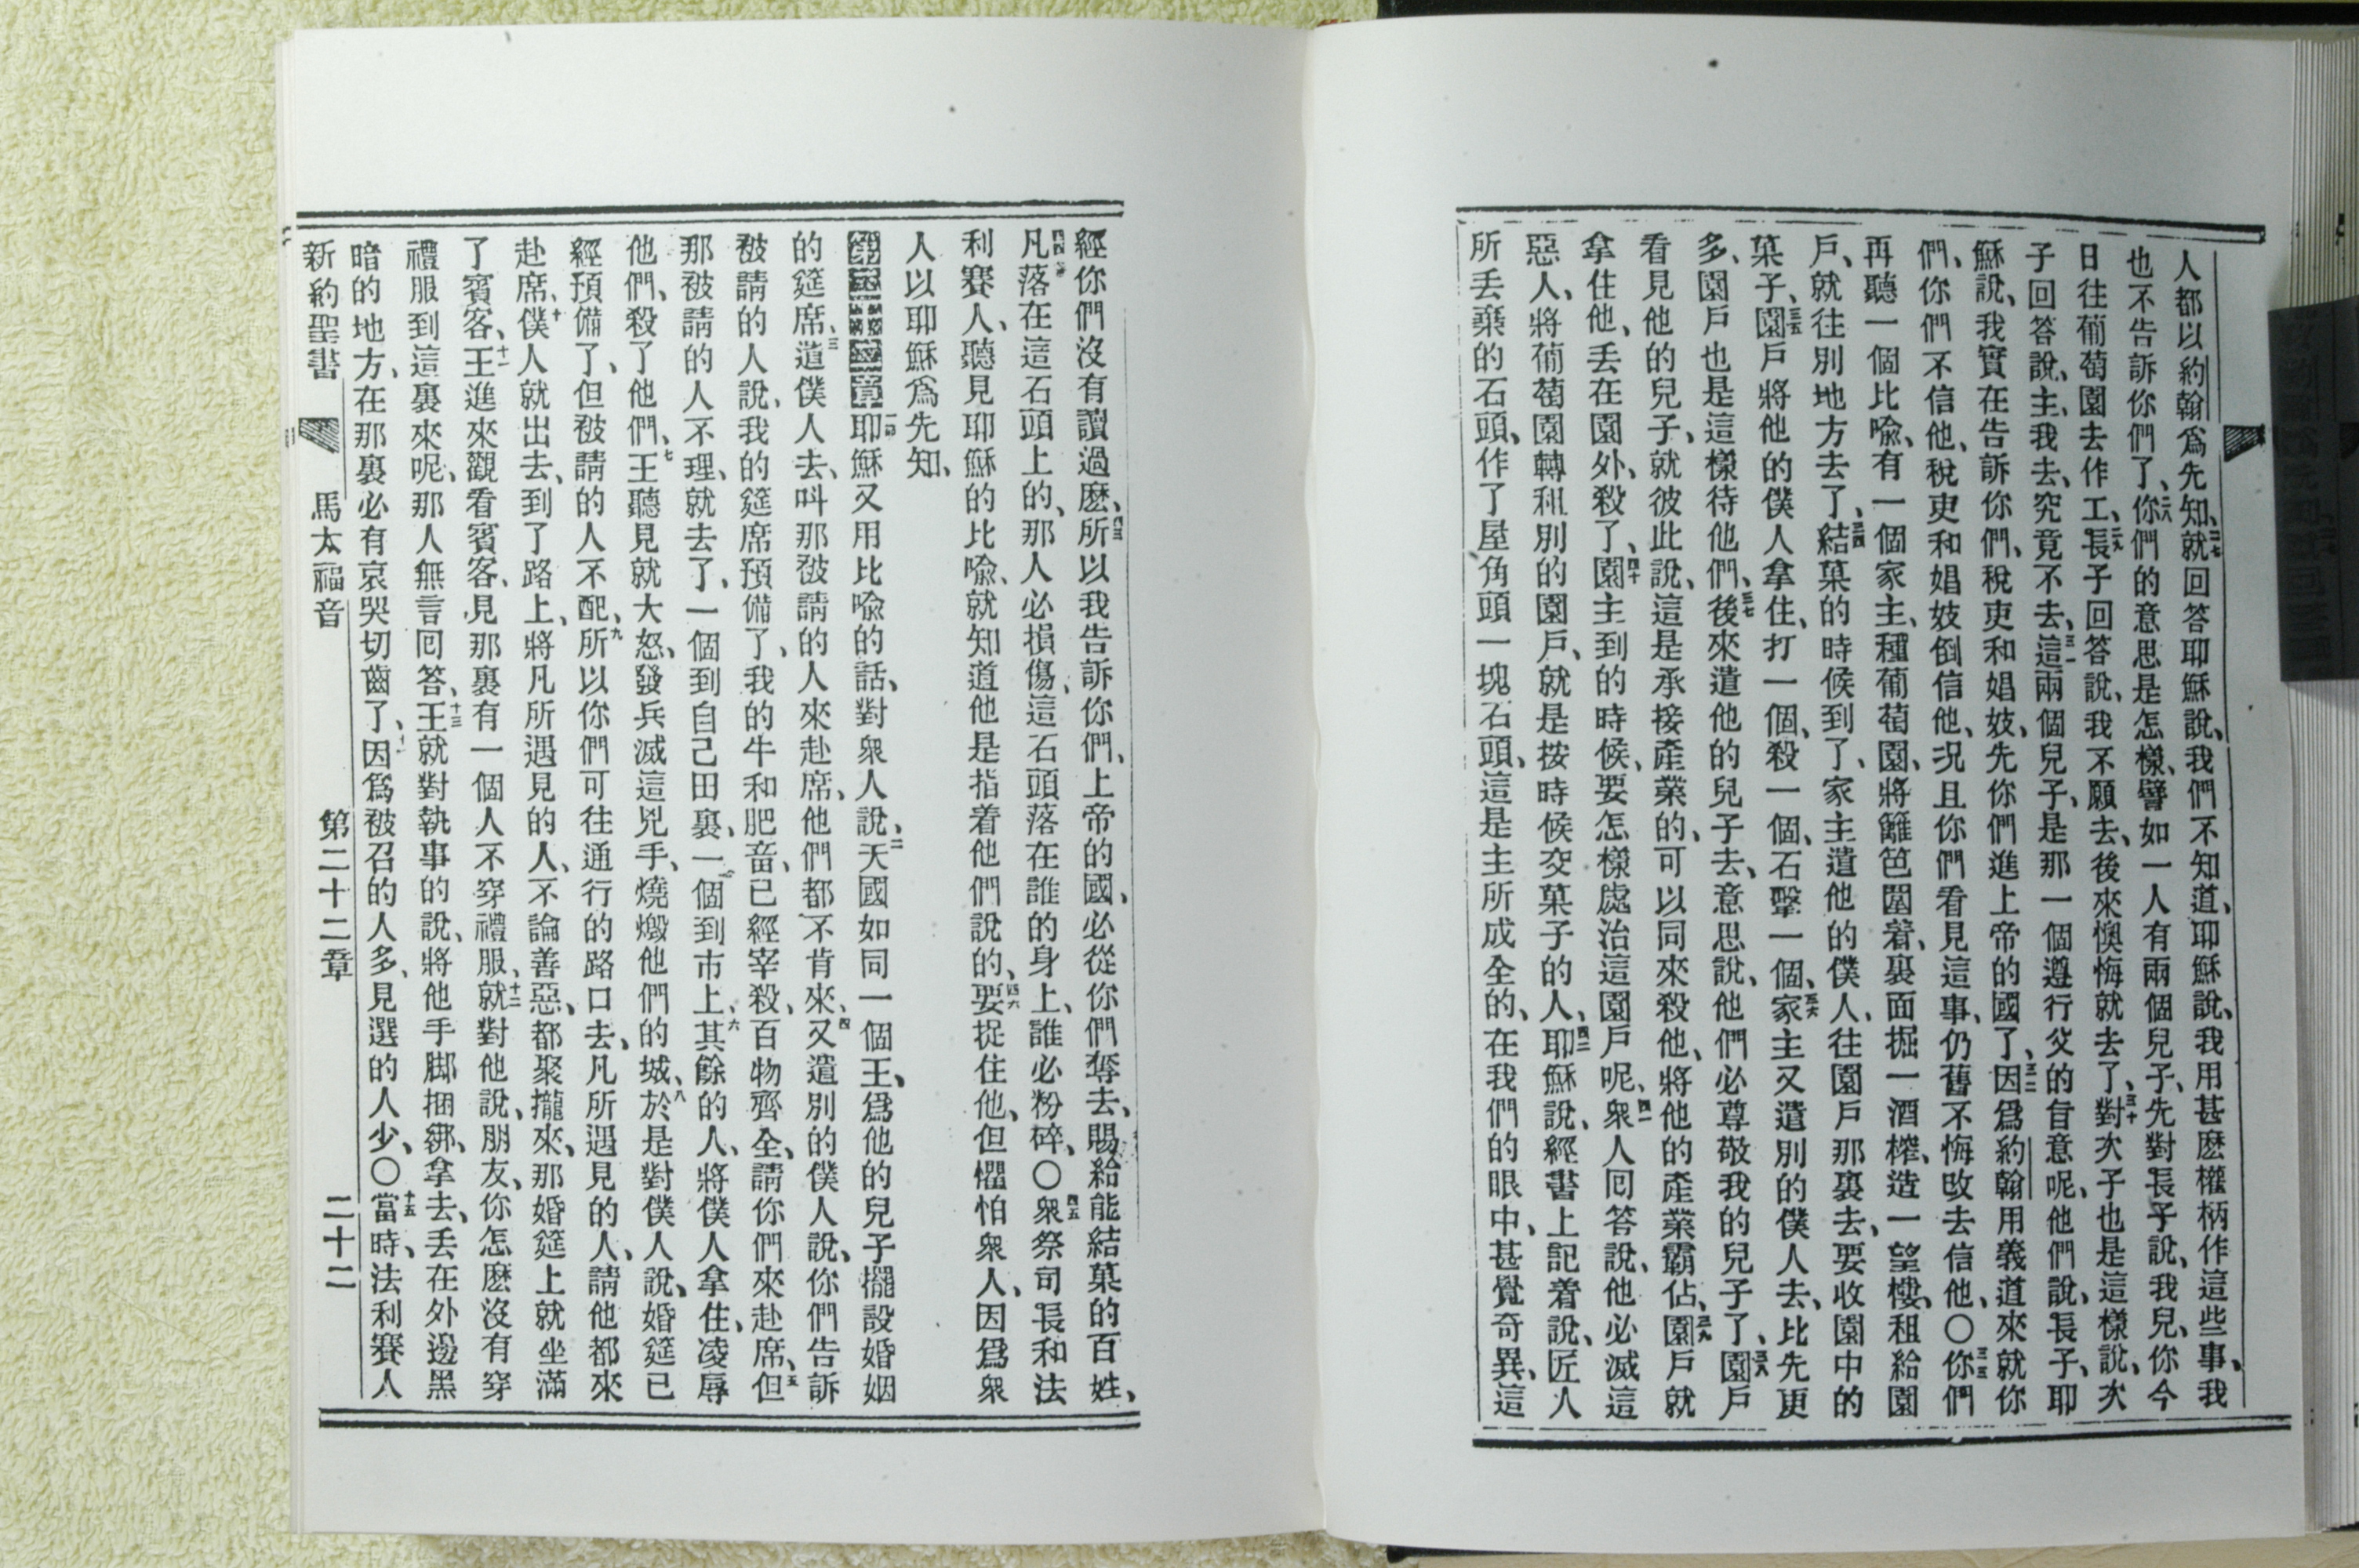 人都以約翰爲先知、二七就回答耶穌說、我們不知道、耶穌說、我用甚麽權柄作這些事、我
也不告訴你們了、二八你們的意思是怎樣、譬如一人有兩個兒子、先對長子說、我兒、你今
日往葡萄園去作工、二九長子回答說、我不願去、後來懊悔就去了、三十對次子也是這樣說、次
子回答說、主、我去、究竟不去、三一這兩個兒子、是那一個遵行父的旨意呢、他們說、長子、耶
穌說、我實在告訴你們、稅吏和娼妓、先你們進上帝的國了、三二因爲約翰用義道來就你
們、你們不信他、稅吏和娼妓倒信他、况且你們看見這事、仍舊不悔改去信他、〇三三你們
再聽一個比喩、有一個家主、種葡萄園、將籬笆圍着、裏面掘一酒榨、造一望樓、租給園
戶、就往別地方去了、三四結菓的時候到了、家主遣他的僕人、往園戶那裏去、要收園中的
菓子、三五園戶將他的僕人拿住、打一個、殺一個、石擊一個、三六家主又遣別的僕人去、比先更
多、園戶也是這樣待他們、三七後來遣他的兒子去、意思說、他們必尊敬我的兒子了、三八園戶
看見他的兒子、就彼此說、這是承接產業的、可以同來殺他、將他的產業霸佔、三九園戶就
拿住他、丟在園外、殺了、四十園主到的時候、要怎樣處治這園戶呢、四一衆人回答說、他必滅這
惡人、將葡萄園轉租別的園戶、就是按時候交菓子的人、四二耶穌說、經書上記着說、匠人
所丟棄的石頭、作了屋角頭一塊石頭、這是主所成全的、在我們的眼中、甚覺奇異、這
經你們沒有讀過麽、四三所以我告訴你們、上帝的國、必從你們奪去、賜給能結菓的百姓、
四四凡落在這石頭上的、那人必損傷、這石頭落在誰的身上、誰必粉碎、〇四五衆祭司長和法
利賽人、聽見耶穌的比喩、就知道他是指着他們說的、四六要捉住他、但懼怕衆人、因爲衆
人以耶穌爲先知、
第二十二章一耶穌又用比喩的話、對衆人說、二天國如同一個王、爲他的兒子擺設婚姻
的筵席、三遣僕人去、叫那被請的人來赴席、他們都不肯來、四又遣別的僕人說、你們告訴
被請的人說、我的筵席預備了、我的牛和肥畜、已經宰殺、百物齊全、請你們來赴席、五但
那被請的人不理、就去了、一個到自己田裏、一個到市上、六其餘的人、將僕人拿住、凌辱
他們、殺了他們、七王聽見就大怒、發兵滅這兇手、燒燬他們的城、八於是對僕人說、婚筵已
經預備了、但被請的人不配、九所以你們可往通行的路口去、凡所遇見的人、請他都來
赴席、十僕人就出去、到了路上、將凡所遇見的人、不論善惡、都聚攏來、那婚筵上就坐滿
了賓客、十一王進來觀看賓客、見那裏有一個人不穿禮服、十二就對他說、朋友、你怎麽沒有穿
禮服到這裏來呢、那人無言回答、十三王就對執事的說、將他手脚捆綁、拿去、丟在外邊黑
暗的地方、在那裏必有哀哭切齒了、十四因爲被召的人多、見選的人少、〇十五當時、法利賽人
新約聖書 馬太福音 第二十二章 二十二